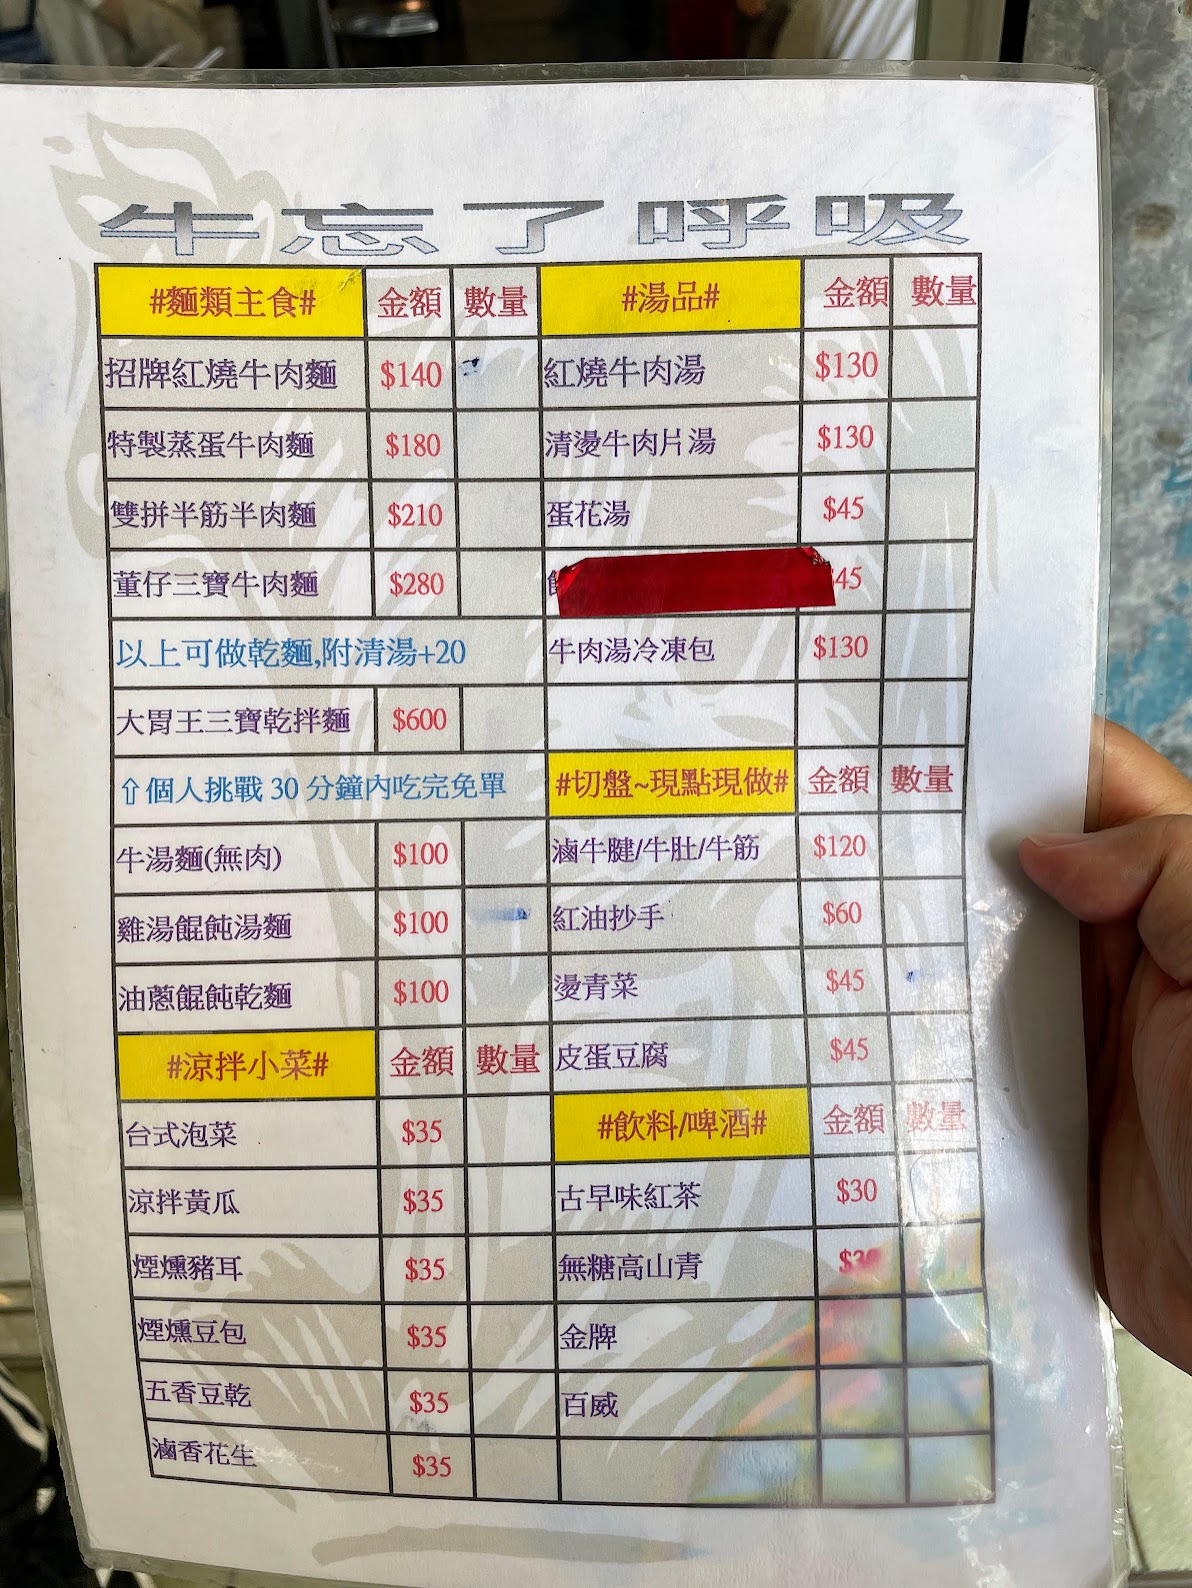 牛忘了呼吸
#麵類主食# 金額 數量
招牌紅燒牛肉麵 $140
特製蒸蛋牛肉麵 $180
雙拼半筋半肉麵 $210
董仔三寶牛肉麵 $280
以上可做乾麵,附清湯+20
大胃王三寶乾拌麵 $600
⇧個人挑戰 30 分鐘內吃完免單
牛湯麵(無肉) $100
雞湯餛飩湯麵 $100
油蔥餛飩乾麵 $100
#涼拌小菜# 金額 數量
台式泡菜 $35
涼拌黃瓜 $35
煙燻豬耳 $35
煙燻豆包 $35
五香豆乾 $35
滷香花生 $35
#湯品# 金額 數量
紅燒牛肉湯 $130
清燙牛肉片湯 $130
蛋花湯 $45
45
牛肉湯冷凍包 $130
#切盤~現點現做# 金額 數量
滷牛腱/牛肚/牛筋 $120
紅油抄手 $60
燙青菜 $45
皮蛋豆腐 $45
#飲料/啤酒# 金額 數量
古早味紅茶 $30
無糖高山青 $30
金牌
百威